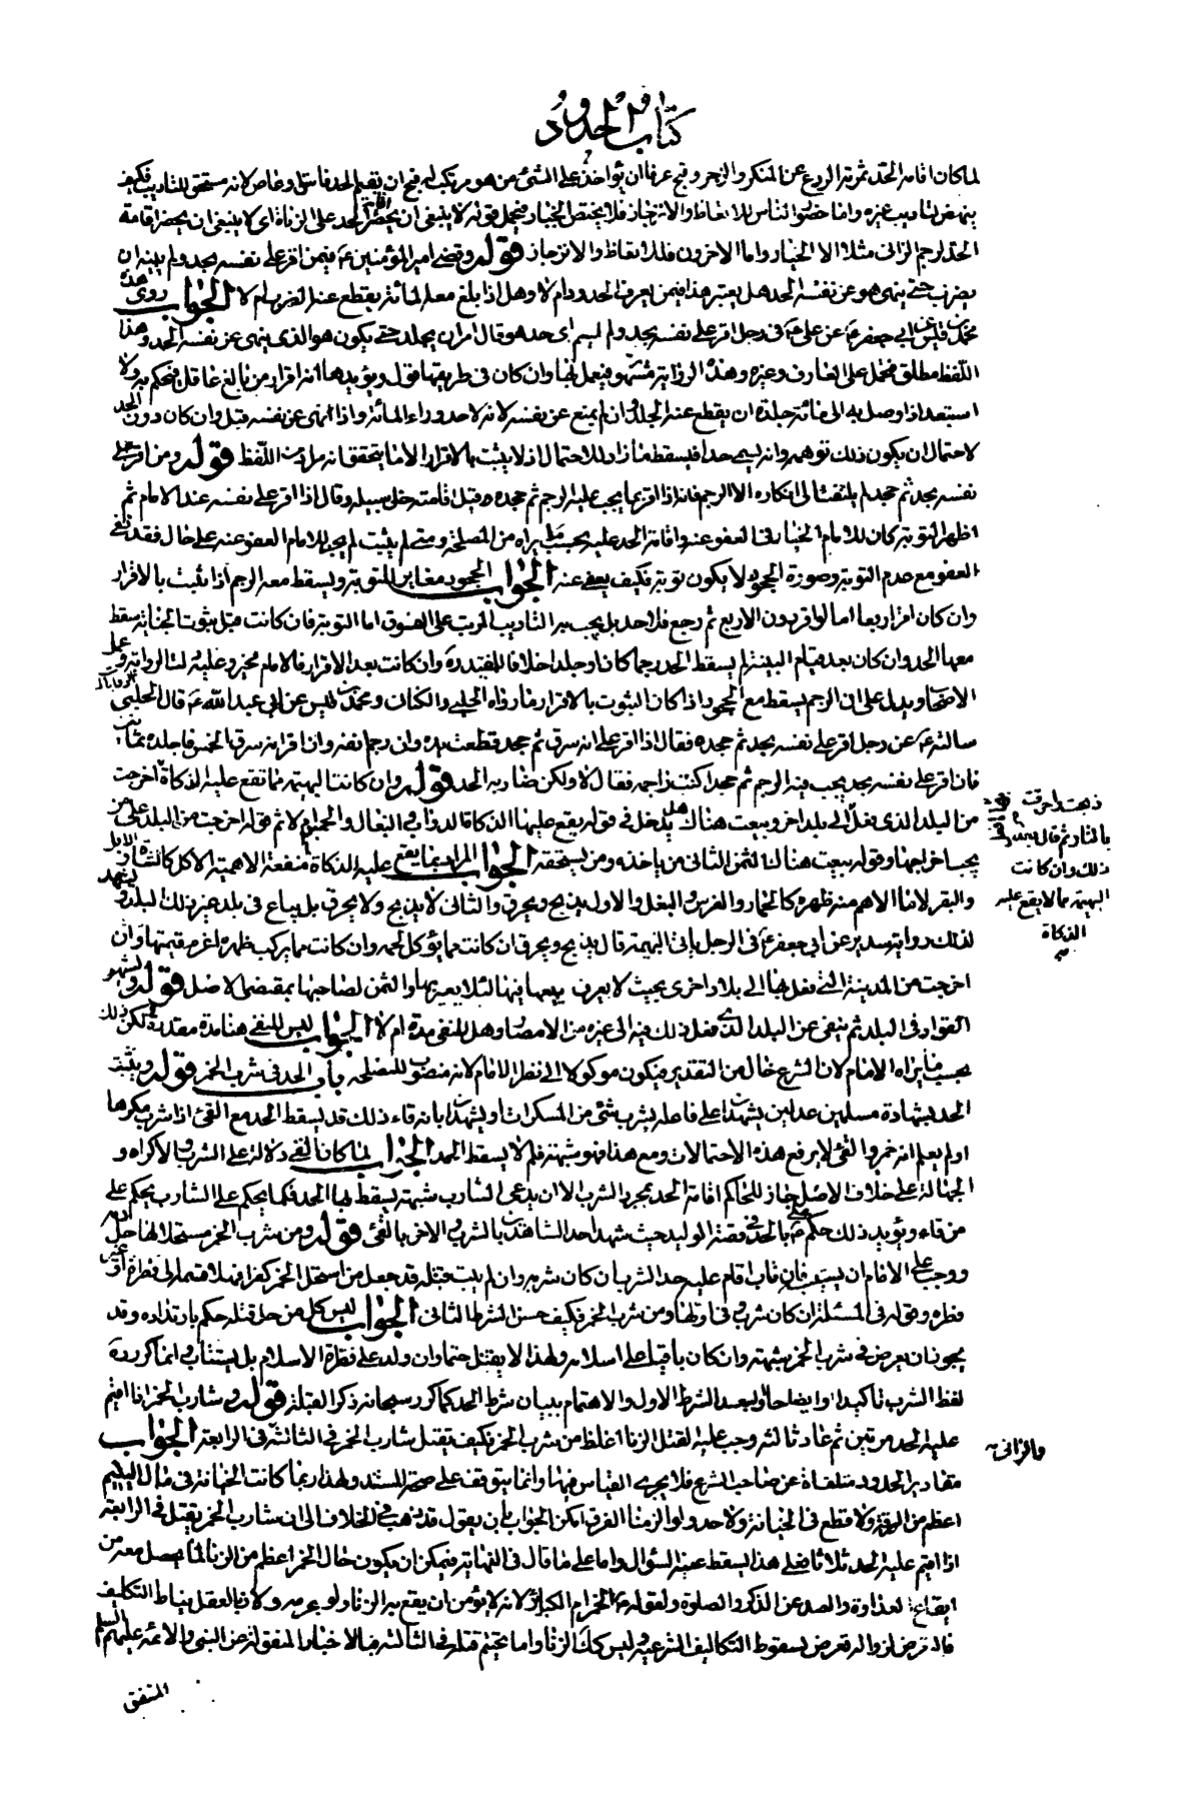 كتاب الحدود
لما كان اقامة الحد ثمرته الردع عن المنكر والزجر وقبح عرفا ان يؤاخذ على الشئ من هو مرتكب له قبح ان يقيم الحد فاسق او عاص لانه مستحق للتاديب فكيف
ينهض لتاديب غيره وانما حضور الناس للاتعاظ والانزجار فلا يختص الخيار فيحمل قوله لا ينبغي ان يحضر الحد على الزناة اي لا ينبغي ان يحضر اقامة
الحد لرجم الزاني مثلا الا الخيار واما الاخرون فللاتعاظ والانزجار قوله وقضى امير المؤمنين ع فيمن اقر على نفسه بحد ولم يبينه ان
يضرب حتى ينهى هو عن نفسه الحد هل يعتبر هذا فيمن يعرف الحدود ام لا وهل اذا بلغ معه المائة يقطع عنه الضرب ام لا الجواب روى هذه
محمد بن قيس عن ابي جعفر ع عن علي ع في رجل اقر على نفسه بحد ولم يسم اي حد هو قال امر ان يجلد حتى يكون هو الذي ينهى عن نفسه الحد وهذا
اللفظ مطلق فيحمل على العارف وغيره وهذه الرواية مشهورة فيعمل بها وان كان في طريقها قول ويؤيدها انه اقرار من بالغ عاقل فيحكم به ولا
استبعد اذا وصل به الى مائة جلدة ان يقطع عنه الجلد وان لم يمنع عن نفسه لانه لا حد وراء المائة واذا انهى عن نفسه قبل وان كان دون الحد
لاحتمال ان يكون ذلك توهمه وانه ليس حدا فيسقط ما زاد للاحتمال اذ لا يثبت بالاقرار الا ما يتحقق انه مراد من اللفظ قوله ومن اقر على
نفسه بحد ثم جحد لم يلتفت الى انكاره الا الرجم فانه اذا اقر بما يجب عليه الرجم ثم جحده قبل اقامته خلى سبيله وقال اذا اقر على نفسه عند الامام ثم
اظهر التوبة كان للامام الخيار في العفو عنه واقامة الحد عليه بحسب ما يراه من المصلحة ومتى لم يثبت لم يجز للامام العفو عنه على حال فقد نفى
العفو مع عدم التوبة وصورة الجحود لا يكون توبة فكيف يعفى عنه الجواب الجحود مغاير للتوبة ويسقط معه الرجم اذا ثبت بالاقرار
وان كان اقراربعا اما لو اقر بدون الاربع ثم رجع فلا حد بل يجب به التاديب المرتب على الفسوق اما التوبة فان كانت قبل ثبوت الجناية سقط
معها الحد وان كان بعد قيام البينة لم يسقط الحد رجما كان او جلدا خلافا للمفيد ره وان كانت بعد الاقرار فالامام مخير وعليه لنا الرواية وعمل
الاصحاب ويدل على ان الرجم يسقط مع الجحود اذا كان الثبوت بالاقرار ما رواه الحلبي والكناني ومحمد بن قيس عن ابي عبد الله ع قال الحلبي
سالته ع عن رجل اقر على نفسه بحد ثم جحده فقال اذا اقر على انه سرق ثم جحد قطعت يده وان رجم انفه وان اقر انه سرق الخمس فاجلده ثمانين
فان اقر على نفسه بحد يجب فيه الرجم ثم جحد اكنت راجمه فقال لا ولكن ضاربه الحد قوله وان كانت البهيمة مما تقع عليه الذكاة اخرجت
من البلد الذي فعل الى بلد اخر وبيعت هناك هل يدخل في قوله يقع عليها الذكاة الدواب والبغال والحمير ام لا ثم قوله اخرجت من البلد على من
يجب اخراجها وقوله بيعت هناك الثمن الثاني من ياخذه ومن يستحقه الجواب المراد بما يقع عليه الذكاة منفعة الاهمية الاكل كالشاة
والبقر لا ما الاهم منه ظهره كالحمار والفرس والبغل والاول يذبح ويحرق والثاني لا يذبح ولا يحرق بل يباع في بلد غير ذلك البلد و
لذلك رواية سدير عن ابي جعفر ع في الرجل ياتي البهيمة قال يذبح ويحرق ان كانت مما يؤكل لحمه وان كانت مما يركب ظهره اغرم قيمتها وان
اخرجت من المدينة التي فعل بها الى بلاد اخرى بحيث لا يعرف يبيعها فيها لئلا يعير بها والثمن لصاحبها بمقتضى الاصل قوله ويشهر
القواد في البلد ثم ينفى عن البلد الذي فعل ذلك فيه الى غيره من الامصار وهل للنفي مدة ام لا الجواب ليس للنفي هنا مدة مقدرة لكن ذلك
بحسب ما يراه الامام لان الشرع خال من التقدير فيكون موكولا الى نظر الامام لانه منصوب للمصلحة باب الحد في شرب الخمر قوله ويثبت
الحد بشهادة مسلمين عدلين يشهدان على فاعله بشرب شئ من المسكرات او يشهدان بانه قاء ذلك قد يسقط الحد مع القئ اذا شربه مكرها
او لم يعلم انه خمر والقئ لا يرفع هذه الاحتمالات ومع هذا فهو شبهة فلم لا يسقط الحد الجواب لما كان القئ دلالة على الشرب والاكراه و
الجهالة على خلاف الاصل جاز للحاكم اقامة الحد بمجرد الشرب الا ان يدعي الشارب شبهة يسقط بها الحد فكما يحكم على الشارب يحكم على
من قاء ويؤيد ذلك حكم علي ع بالحد في قصة الوليد حيث شهد احد الشاهدين بالشرب والاخر بالقئ قوله ومن شرب الخمر مستحلا لها حل دمه
ووجب على الامام ان يستتيبه فان تاب اقام عليه حد الشرب ان كان شربه وان لم يتب قتله قد جعل من استحل الخمر كفرا فهلا قسمه الى فطرة او غير
فطرة وقوله في المسئلة ان كان شرب في اولها ومن شرب الخمر فكيف حسن الشرط الثاني الجواب ليس كل من حل قتله حكم بارتداده وقد
يجوز ان يعرض في شرب الخمر شبهة وان كان باقيا على اسلامه ولهذا لا يقتل حتما وان ولد على فطرة الاسلام بل يستتاب وانما كرر ره
لفظ الشرب تاكيدا او ايضاحا او لبعد الشرط الاول والاهتمام ببيان شرط الحد كما كرر سبحانه ذكر القبلة قوله وشارب الخمر اذا اقيم
عليه الحد مرتين ثم عاد ثالثة وجب عليه القتل الزنا اغلظ من شرب الخمر فكيف يقتل شارب الخمر في الثالثة في الرابعة الجواب
مقادير الحدود متلقاة عن صاحب الشرع فلا يجري القياس فيها وانما يتوقف على صحة المستند ولهذا ربما كانت الخيانة في مال اليتيم
اعظم من السرقة ولا قطع في الخيانة ولا حد ولو الزمنا الفرق امكن الجواب بان يقول قد ذهب في الخلاف الى ان شارب الخمر يقتل في الرابعة
اذا اقيم عليه الحد ثلاثا فعلى هذا يسقط عنه السؤال واما على ما قال في النهاية فيمكن ان يكون حال الخمر اعظم من الزنا لما يحصل معه من
ايقاع العداوة والصد عن الذكر والصلوة ولقوله ع الخمر ام الكبائر لانه لا يؤمن ان يقع به الزنا ولو بمحرمه ولان بالعقل يناط التكاليف
فالتعرض لزواله تعرض لسقوط التكاليف الشرعية وليس كذلك الزنا واما تحتم قتله في الثالثة فبالاخبار المنقولة عن النبي والائمة عليهم السلم
المتفق
ذبحت واحرقت
بالنار ثم قال بعد
ذلك وان كانت
البهيمة مما لا يقع عليه
الذكاة
والزاني